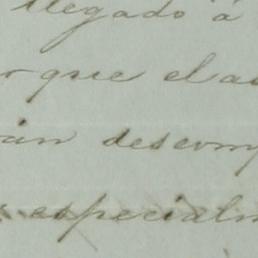 llegado á
rque el a
án desem
especialm